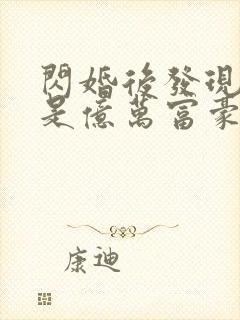 閃婚後發現
是億萬富豪
康迪